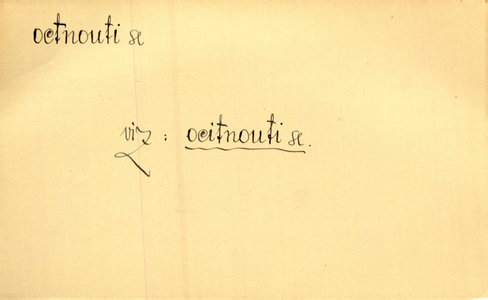 octnouti se
viz : ocitnouti se.